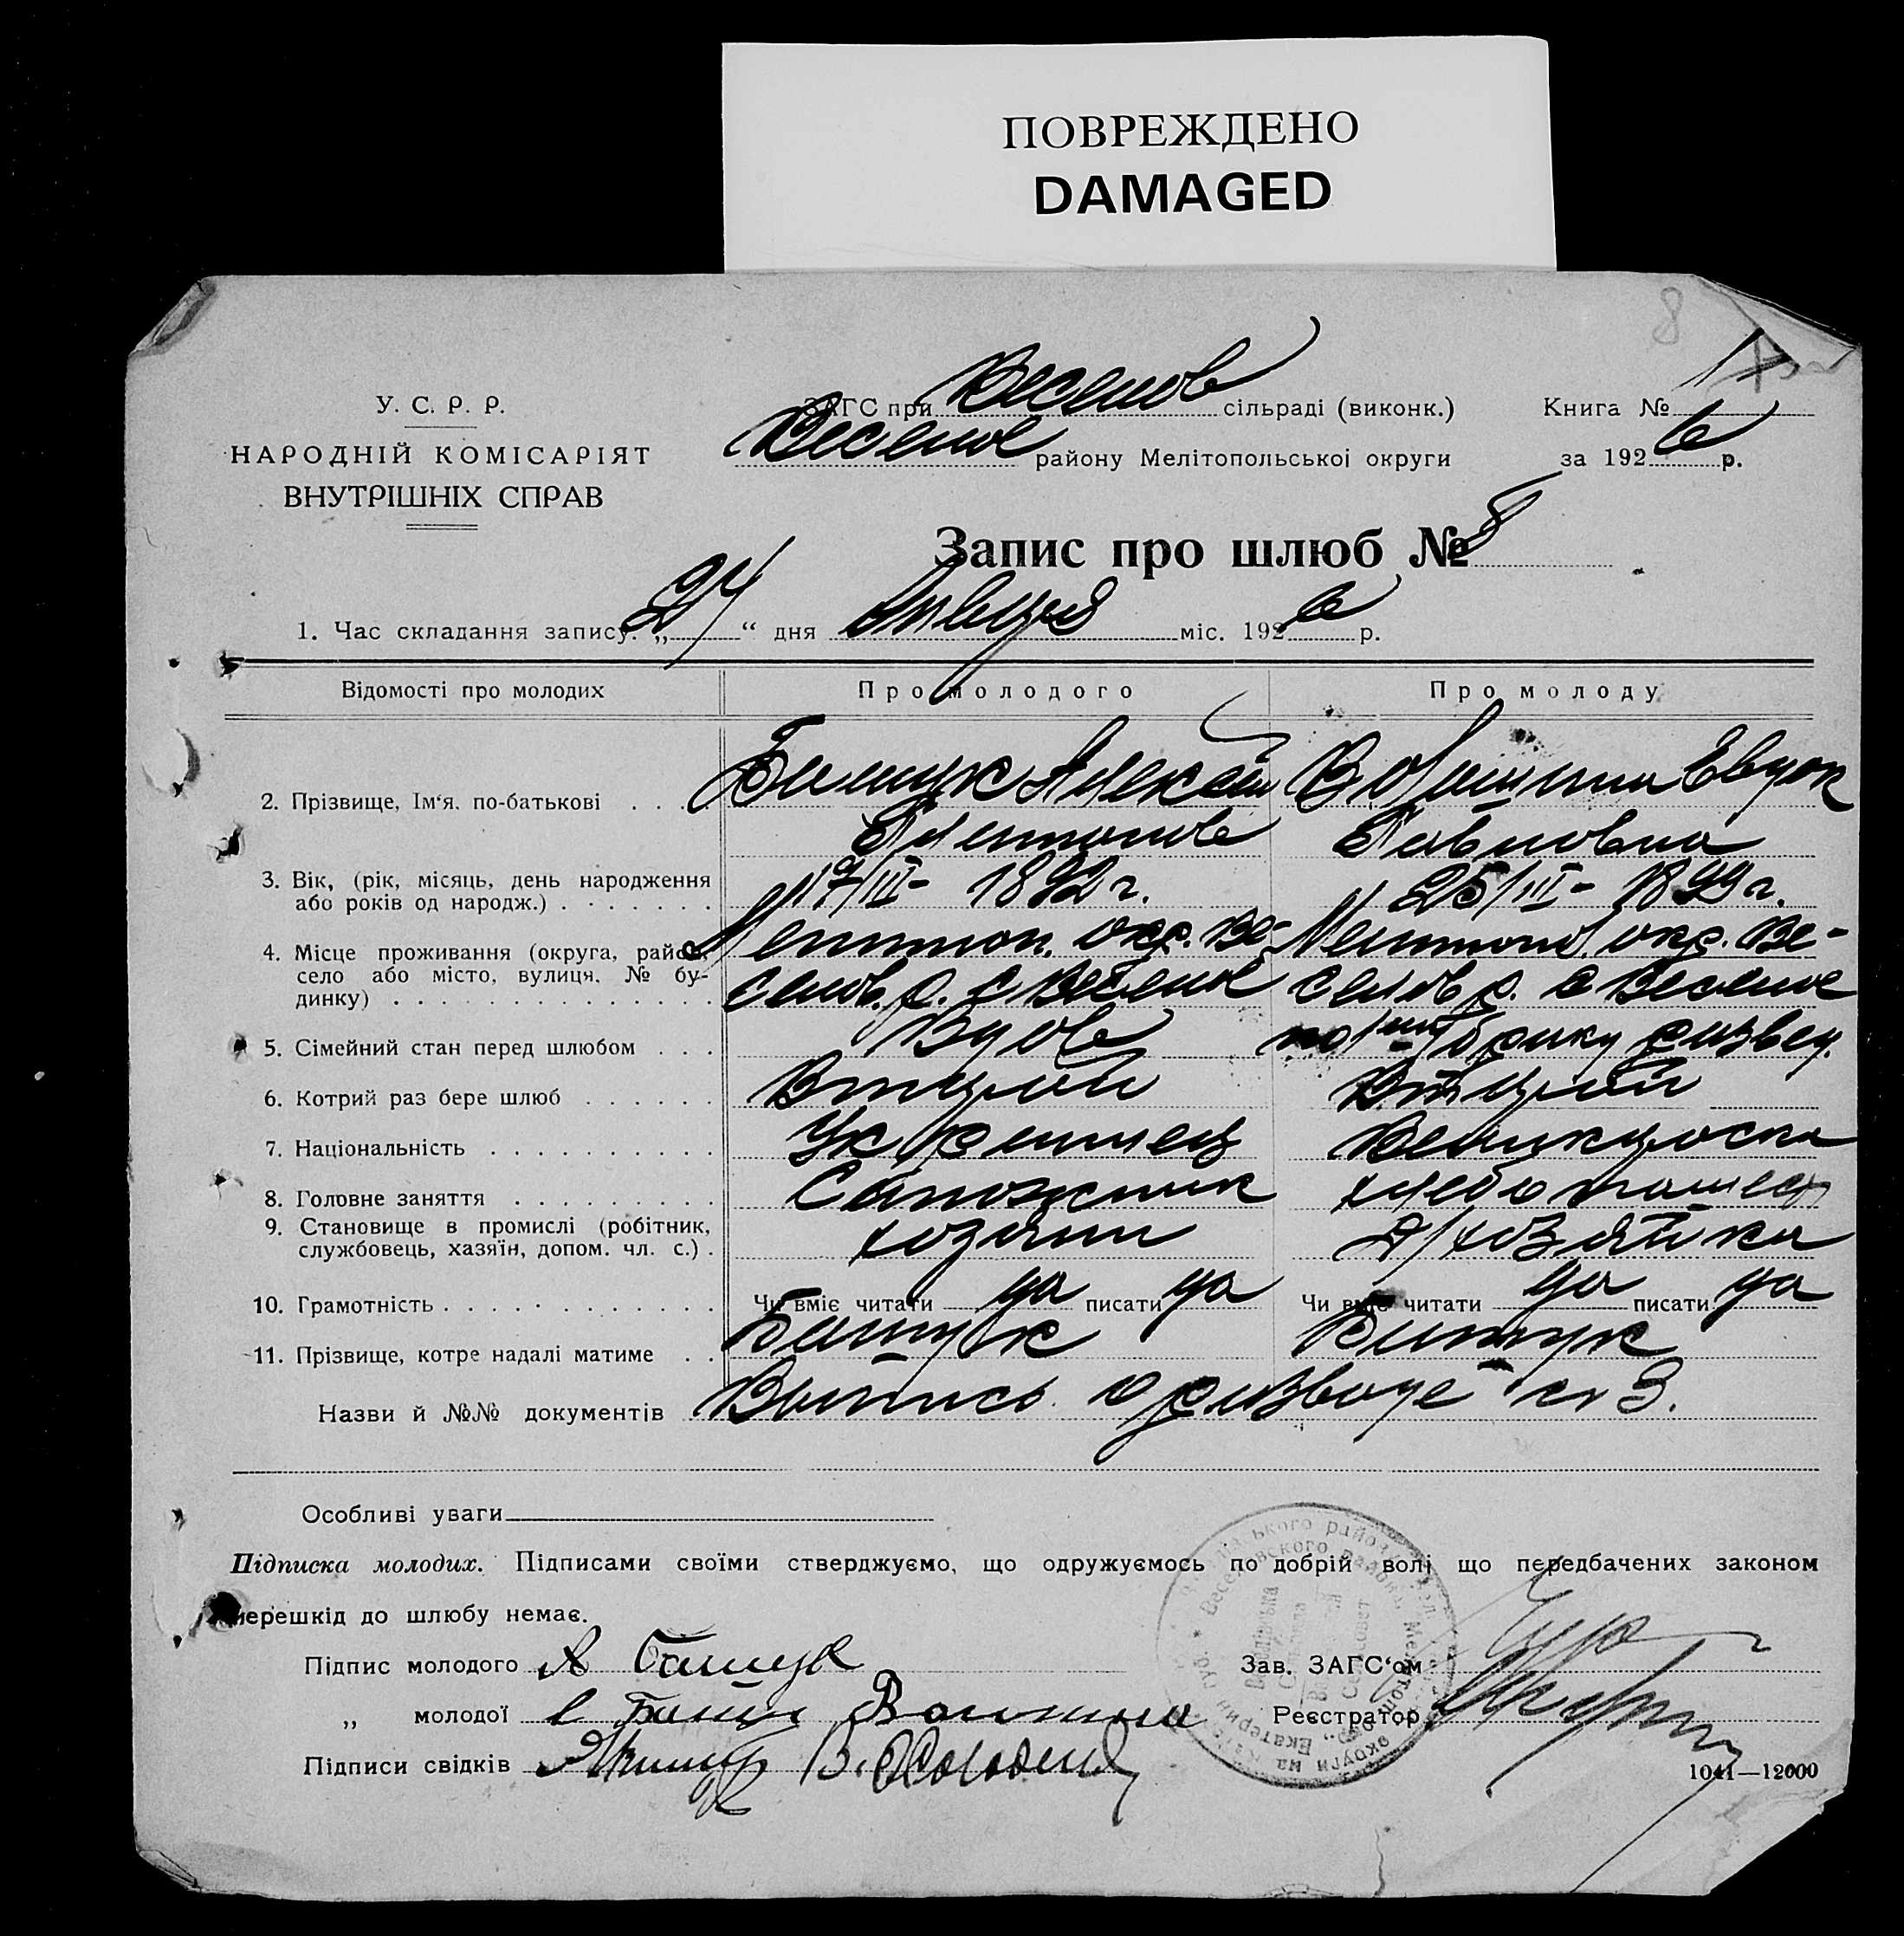 ПОВРЕЖДЕНО
DAMAGED
8
У. С. Р. Р.
НАРОДНІЙ КОМІСАРІЯТ
ВНУТРІШНІХ СПРАВ
ЗАГС при Веселов сільраді (виконк.)
Веселое району Мелітопольської округи
Книга №
за 1926 р.
Запис про шлюб № 8
1. Час складання запису: „24“ дня Января міс. 1926 р.
Відомості про молодих Про молодого Про молоду
2. Прізвище, Ім'я. по-батькові . . . Алексей Евдок
Платонов Павловна
3. Вік, (рік, місяць, день народження
або років од народж.) . . . . . . . 17/III- 1892 г. 25/III- 1899 г.
4. Місце проживання (округа, район,
село або місто, вулиця. № бу-
динку) . . . . . . . . . . . . . . .
Мелитоп. окр. Ве- Мелитопол. окр. Ве-
селов. р. с Веселое селов р. с Веселое
5. Сімейний стан перед шлюбом . . . Вдов по развед.
6. Котрий раз бере шлюб . . . . . . Второй Второй
7. Національність . . . . . . . . . . Украинец Великороска
8. Головне заняття . . . . . . . . . Сапожник хлебопашец
9. Становище в промислі (робітник,
службовець, хазяїн, допом. чл. с.) . хозяин д/хозяйка
10. Грамотність . . . . . . . . . . . . . Чи вміє читати да писати да Чи вміє читати да писати да
11. Прізвище, котре надалі матиме . . Башук Башук
Назви й №№ документів Выпись о разводе
Особливі уваги
Підписка молодих. Підписами своїми стверджуємо, що одружуємось по добрій волі що передбачених законом
перешкід до шлюбу немає.
Підпис молодого А Башук
„ молодої
Підписи свідків
Зав. ЗАГС'ом
Реєстратор
1041—12000